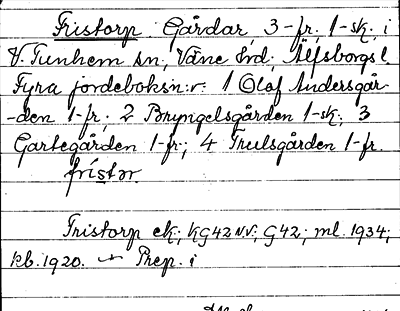 Fristorp Gårdar 3-fr, 1-sk. i
V. Tunhem sn, Väne hd, Älfsborgs l.
Fyra jordeboksn:r: 1 Olof Andersgår-
-den 1-fr; 2 Bryngelsgården 1-sk; 3
Gartegården 1-fr; 4 Trulsgården 1-fr.
fristɷr
Fristorp ek; KG42NV; G42; ml. 1934;
kb. 1920. Prep. i